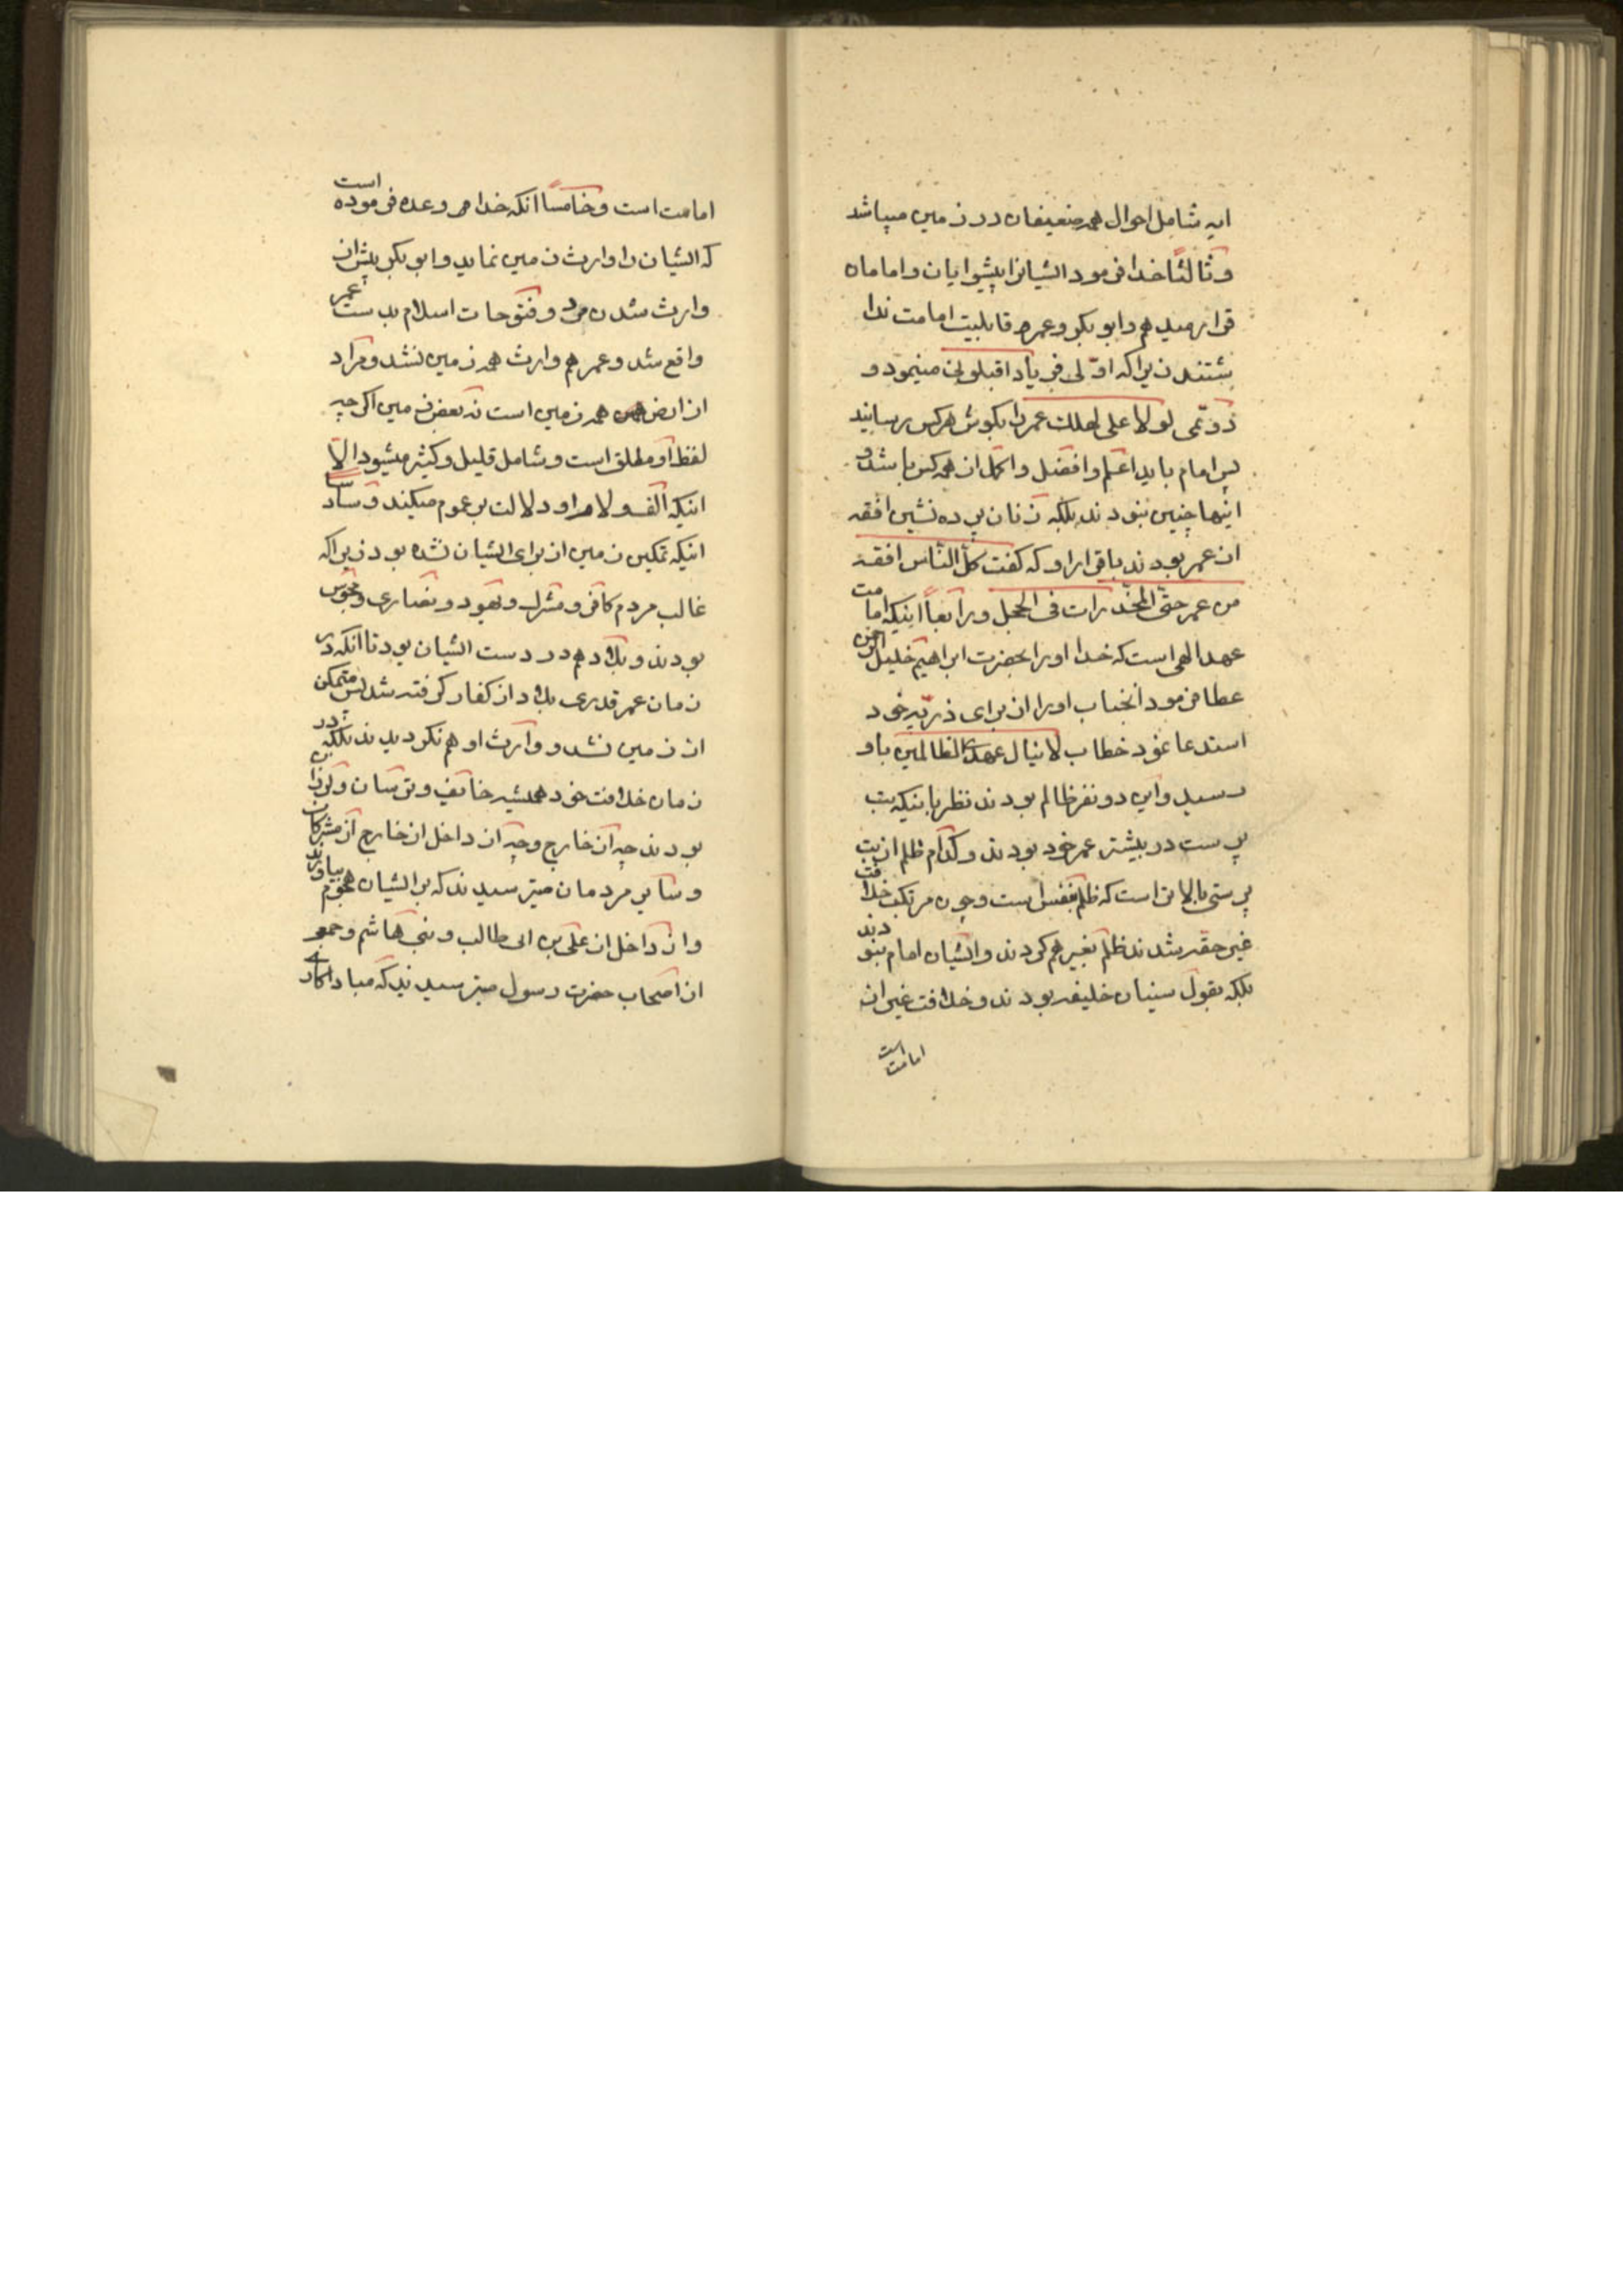 ایه شامل احوال همه ضعیفان در زمین میباشد
و ثالثا خدا فرمود ایشانرا پیشوایان و امامان
قرار میدهم و ابوبکر و عمر قابلیت امامت ندا
شتند زیرا که اولی فریاد اقیلونی مینمود و
دویمی لولا علی لهلک عمر را بکوش هرکس رسانید
پس امام باید اعلم و افضل و اکمل از همه کس باشد و
اینها چنین نبودند بلکه زنان پرده نشین افقه
از عمر بودند باقرار او که کفت کل الناس افقه
من عمر حتی المخدرات فی الحجل و رابعاً اینکه امامت
عهد الهی است که خدا اورا بحضرت ابراهیم خلیل الرحمن
عطا فرمود انجناب اورا از برای ذریه خود
استدعا نمود خطاب لا ینال عهدی الظالمین باو
رسید و این دو نفر ظالم بودند نظر باینکه بت
پرست در بیشتر عمر خود بودند و کدام ظلم از بت
پرستی بالاتر است که ظلم بنفس است و چون مرتکب خلافت
غیر حقه شدند ظلم بغیر هم کردند و ایشان امام نبودند
بلکه بقول سنیان خلیفه بودند و خلافت غیر از
امامت است
امامت است و خامساً انکه خدا وعده فرموده است
که ایشان را وارث زمین نماید و ابوبکر پیش از
وارث شدن مرد و فتوحات اسلام بدست عمر
واقع شد و عمر هم وارث همه زمین نشد و مراد
از ارض همه زمین است نه بعض زمین اکرچه
لفظ او مطلق است و شامل قلیل و کثیر میشود الا
اینکه الف و لام او دلالت بر عموم میکند و سادسا
اینکه تمکین زمین از برای ایشان نشده بود زیرا که
غالب مردم کافر و مشرک و یهود و نصاری و مجوس
بودند و بلاد هم در دست ایشان بود تا انکه در
زمان عمر قدری بلاد از کفار کرفته شد پس متمکن
از زمین نشد و وارث او هم نکردیدند بلکه در
زمان خلافت خود همیشه خائف و ترسان و لرزان
بودند چه از خارج و چه از داخل از خارج از مشرکان
و سایر مردمان میترسیدند که بر ایشان هجوم بیاورند
و از داخل از علی بن ابی طالب و بنی هاشم و جمعی
از اصحاب حضرت رسول میترسیدند که مبادا